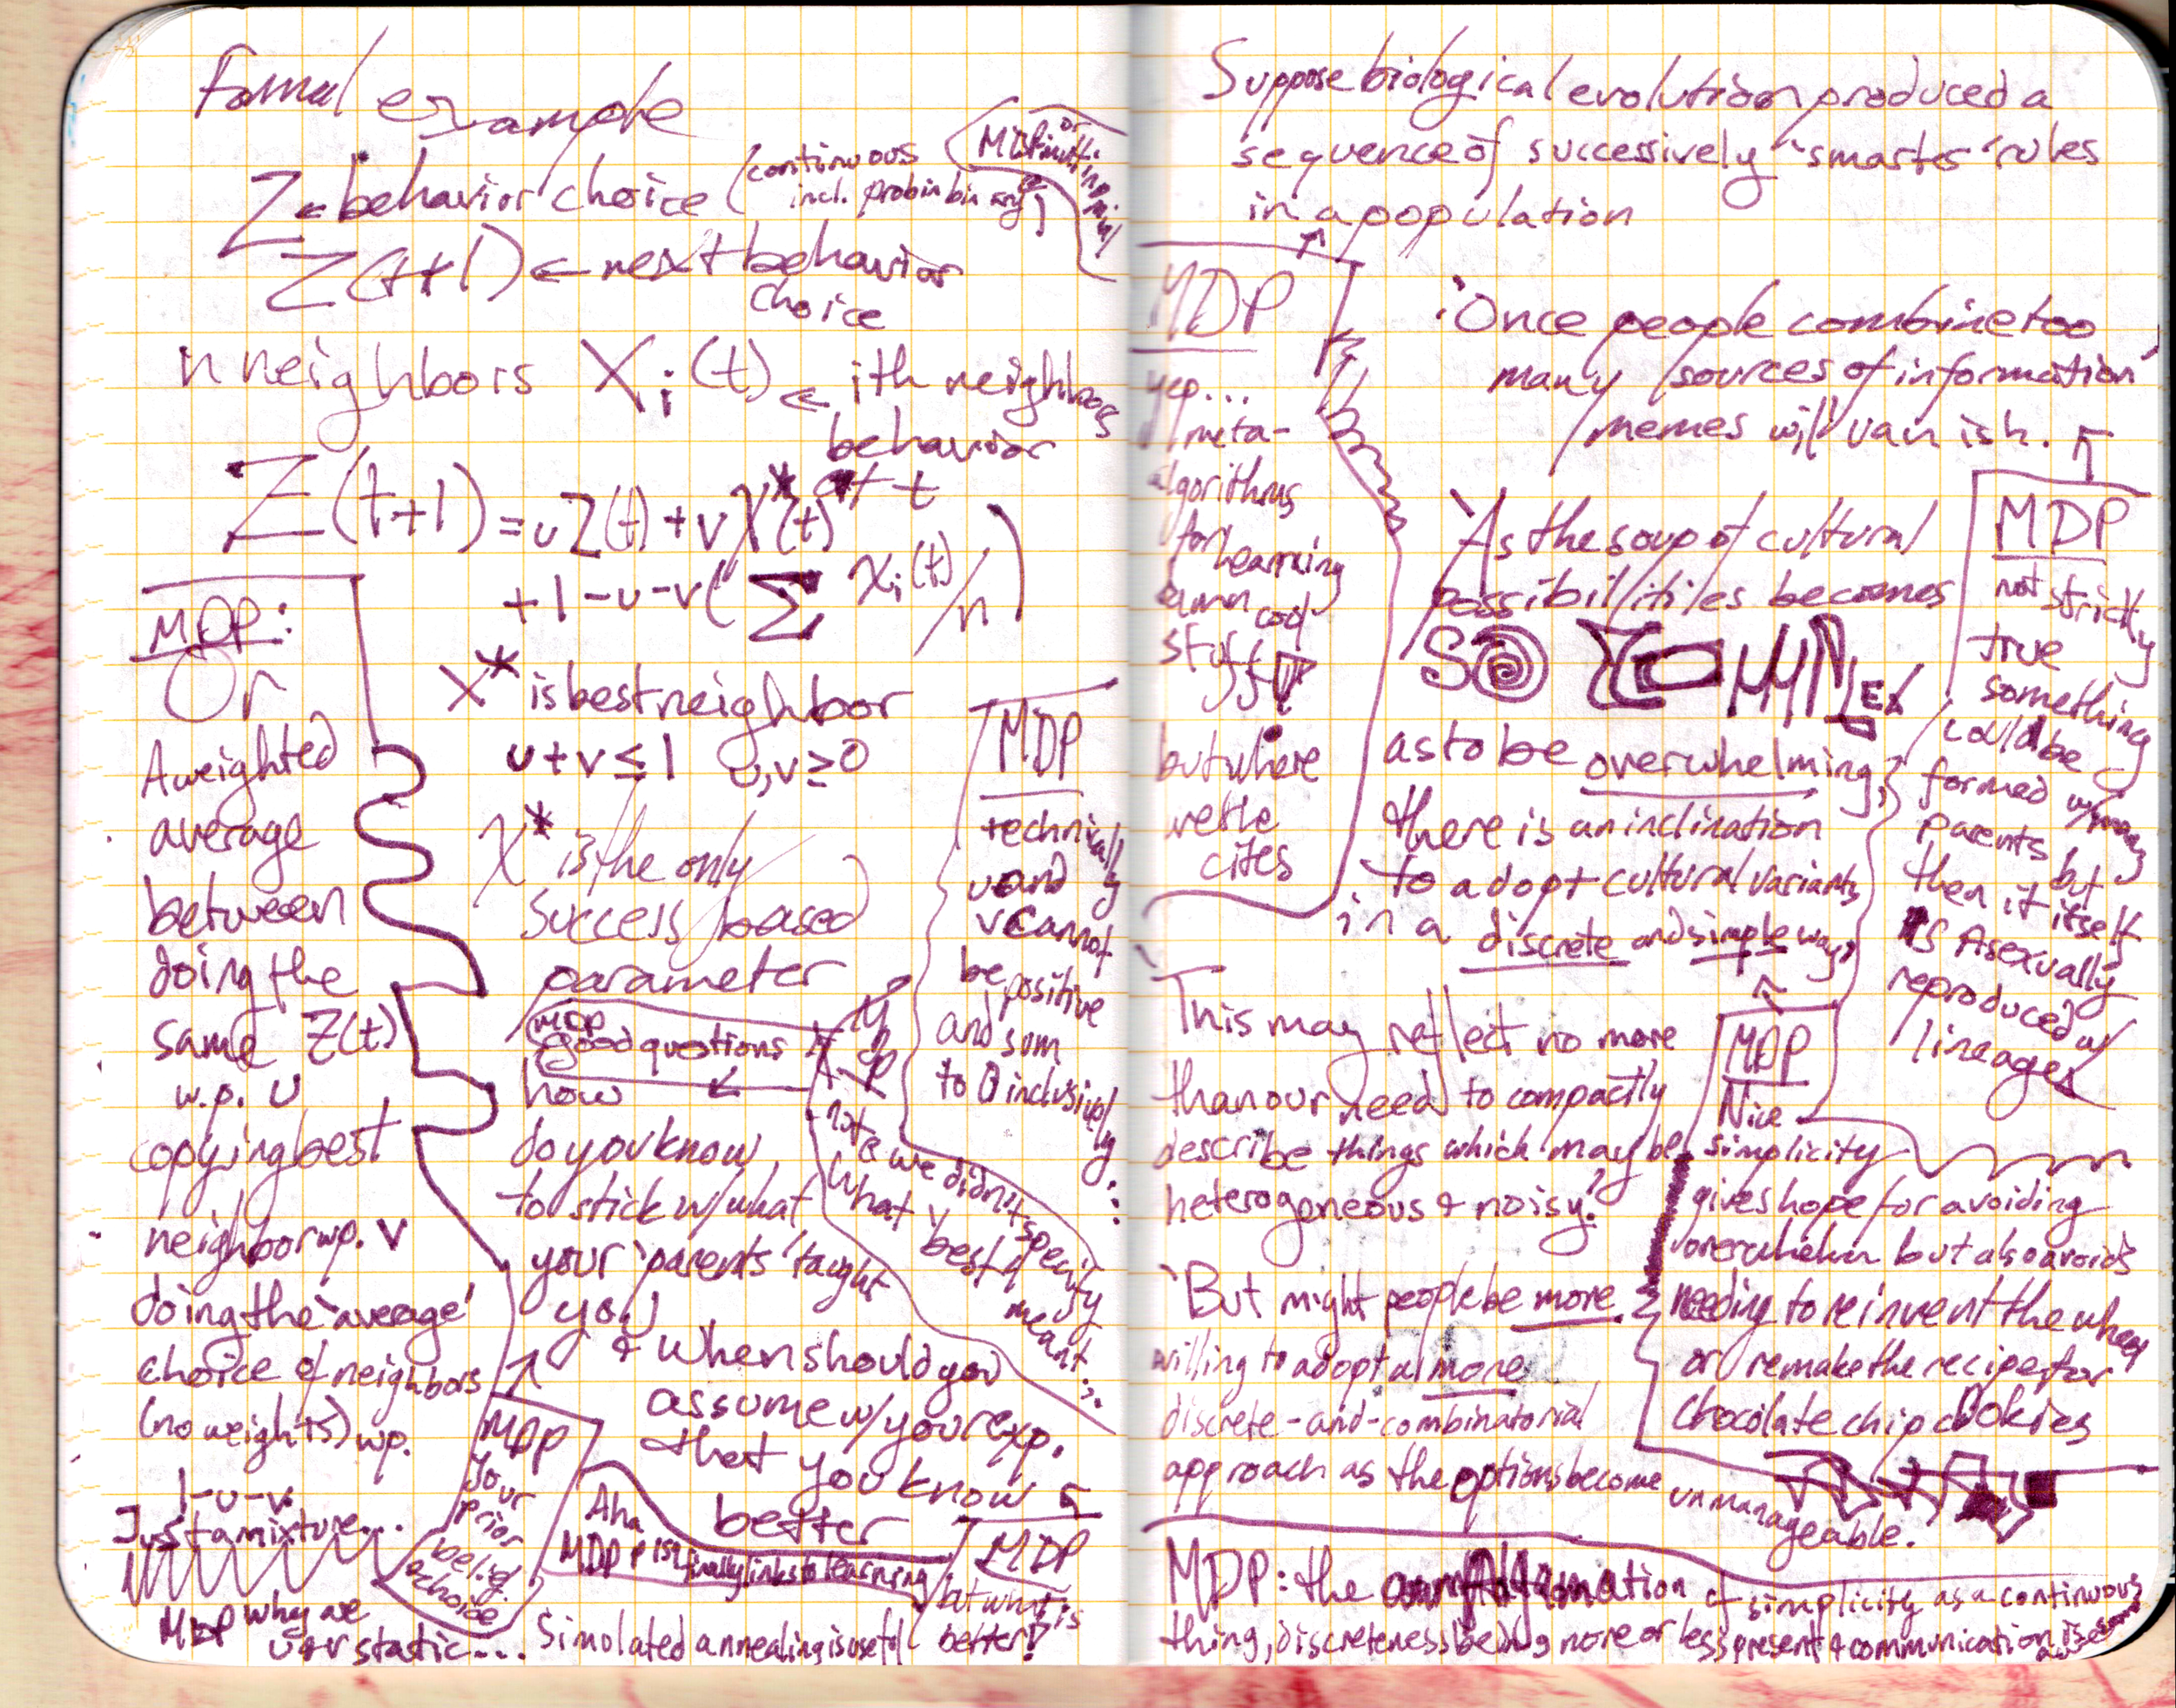 Formal example
Z ← behavior choice (continuous
incl. prob in binary)
Z(t+1) ← next behavior
choice
n neighbors Xi(t) ← ith neighbors
behavior
at t
Z(t+1) = uZ(t) + vX*(t)
+ 1-u-v( Σ Xi(t)/n )
X* is best neighbor
u+v ≤ 1 u,v ≥ 0
X* is the only
success based
parameter
MDP
good questions
how
do you know
to stick w/ what
your 'parents' taught
you
& when should you
assume w/ your exp.
that you know
better
MDP:
Or
A weighted
average
between
doing the
same Z(t)
w.p. u
copying best
neighbor wp. v
doing the 'average'
choice of neighbors
(no weights) wp.
1-u-v.
Just a mixture...
MDP why are
u & v static...
MDP
your
prior
belief
choice
MDP
technically
u and
v cannot
be positive
and sum
to 0 inclusively
note we didn't specify
what best
meant...
Aha
MDP finally links to learning
MDP
but what is
better?
Simulated annealing is useful
Suppose biological evolution produced a
sequence of successively "smarter" rules
in a population
MDP
yep...
meta-
algorithms
for learning
damn cool
stuff
but where
are the
cites
'Once people combine too
many sources of information
memes will vanish.'
MDP
not strictly
true
something
could be
formed w/ many
parents but
then it itself
is Asexually
reproduced w/
lineages
'As the soup of cultural
possibilities becomes
SO COMPLEX
as to be overwhelming,
there is an inclination
to adopt cultural variants
in a discrete and simple way,
This may reflect no more
than our need to compactly
describe things which may be
heterogeneous & noisy.'
MDP
Nice
simplicity
gives hope for avoiding
overwhelm but also avoids
needing to reinvent the wheel
or remake the recipe for
chocolate chip cookies
'But might people be more
willing to adopt a more
discrete-and-combinatorial
approach as the options become
unmanageable.'
MDP: the of simplicity as a continuous
thing, discreteness being more or less present & communication is